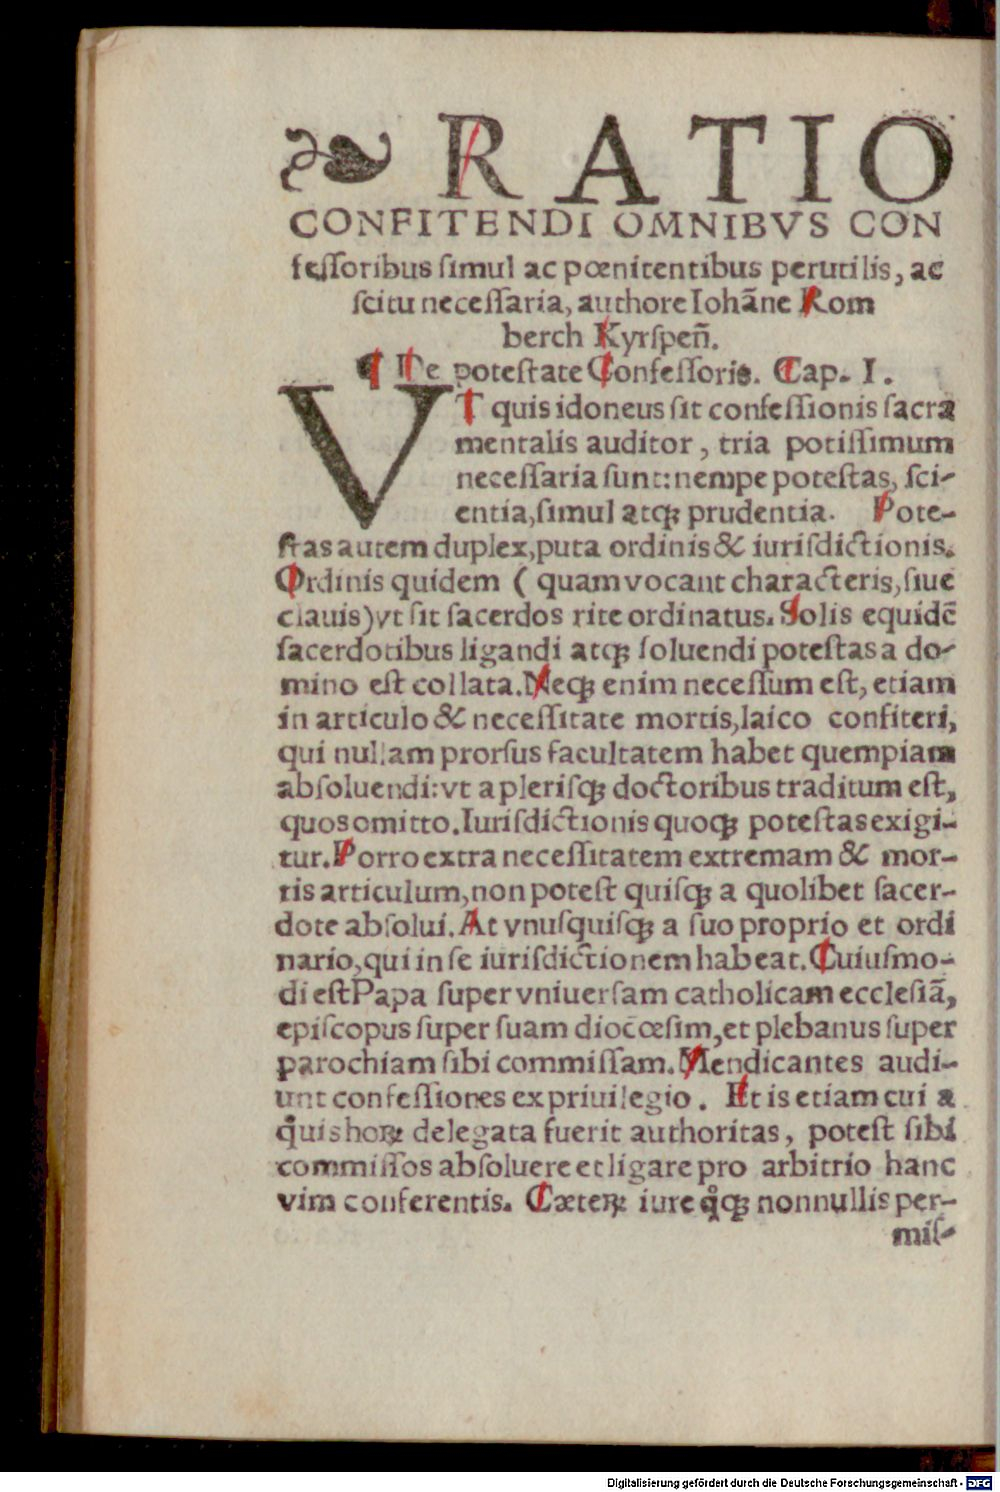 ❧ RATIO
CONFITENDI OMNIBVS CON
feſſoribus ſimul ac pœnitentibus perutilis, ac
ſcitu neceſſaria, authore Iohãne Rom
berch Kyrſpeñ.
¶ De poteſtate Confeſſoris. Cap. I.
VT quis idoneus ſit confeſſionis ſacra
mentalis auditor, tria potiſſimum
neceſſaria ſunt: nempe poteſtas, ſci-
entia, ſimul atqꝫ prudentia. Pote-
ſtas autem duplex, puta ordinis & iuriſdictionis.
Ordinis quidem ( quam vocant characteris, ſiue
clauis) vt ſit ſacerdos rite ordinatus. Solis equidẽ
ſacerdotibus ligandi atqꝫ ſoluendi poteſtas a do-
mino eſt collata. Neqꝫ enim neceſſum eſt, etiam
in articulo & neceſſitate mortis, laico confiteri,
qui nullam prorſus facultatem habet quempiam
abſoluendi: vt a pleriſqꝫ doctoribus traditum eſt,
quos omitto. Iuriſdictionis quoqꝫ poteſtas exigi-
tur. Porro extra neceſſitatem extremam & mor-
tis articulum, non poteſt quiſqꝫ a quolibet ſacer-
dote abſolui. At vnuſquiſqꝫ a ſuo proprio et ordi
nario, qui in ſe iuriſdictionem habeat. Cuiuſmo-
di eſt Papa ſuper vniuerſam catholicam eccleſiã,
epiſcopus ſuper ſuam diocœſim, et plebanus ſuper
parochiam ſibi commiſſam. Mendicantes audi-
unt confeſſiones ex priuilegio. Et is etiam cui a
qͦuis hoꝝ delegata fuerit authoritas, poteſt ſibi
commiſſos abſoluere et ligare pro arbitrio hanc
vim conferentis. Cæteꝝ iure qͦqꝫ nonnullis per-
miſ-
Digitalisierung gefördert durch die Deutsche Forschungsgemeinschaft - DFG